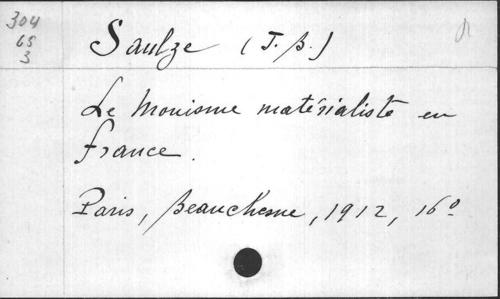 304
65
3
Saulze (J. B.)
Le Monisme matérialiste en
france.
Paris, Beauchesne, 1912, 16º